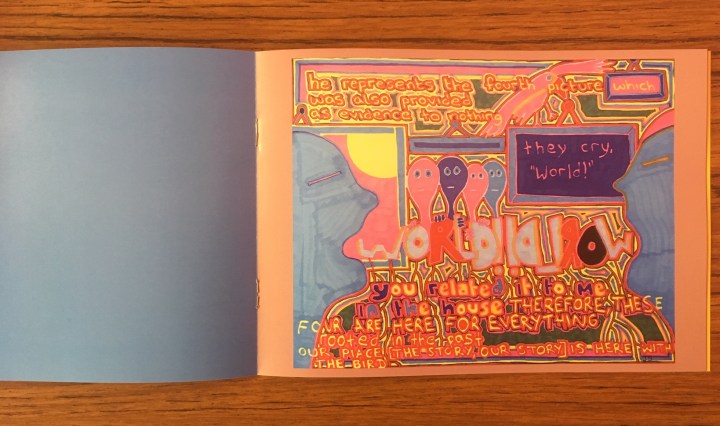 he represents the fourth picture which
was also provided
as evidence to nothing
they cry,
"World!"
you related it to me
in the house THEREFORE THESE
FOUR ARE HERE FOR EVERYTHING
rooted in the past
OUR PLACE [THE STORY, OUR STORY] IS HERE WITH
THE BIRD